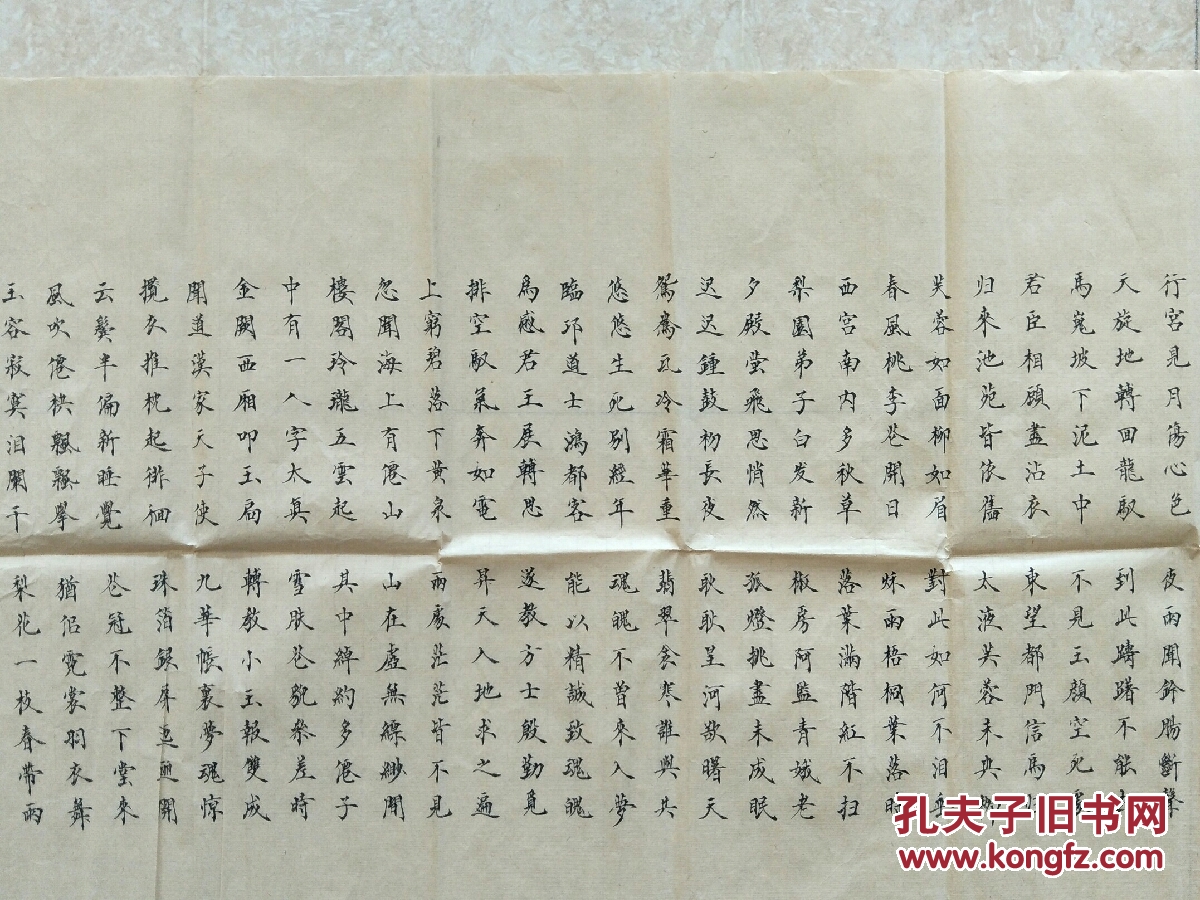 行宫見月傷心色 夜雨聞鈴腸斷聲
天旋地轉回龍馭 到此躊躇不能
馬嵬坡下泥土中 不見玉顏空死處
君臣相顧盡沾衣 東望都門信馬
归來池苑皆依舊 太液芙蓉未央柳
芙蓉如面柳如眉 對此如何不泪垂
春風桃李花開日 秌雨梧桐葉落時
西宫南内多秋草 落葉滿階紅不扫
梨園弟子白发新 椒房阿監青娥老
夕殿萤飛思悄然 孤燈挑盡未成眠
迟迟鍾鼓初長夜 耿耿星河欲曙天
鴛鴦瓦冷霜華重 翡翠衾寒誰與共
悠悠生死别經年 魂魄不曾來入夢
臨邛道士鴻都客 能以精誠致魂魄
為感君王展轉思 遂教方士殷勤覓
排空馭氣奔如電 昇天入地求之遍
上窮碧落下黄泉 兩處茫茫皆不見
忽聞海上有僊山 山在虚無縹緲間
樓閣玲瓏五雲起 其中綽約多僊子
中有一人字太真 雪肤花貌叅差時
金闕西廂叩玉扃 轉教小玉報雙成
聞道漢家天子使 九華帳裏夢魂惊
攬衣推枕起徘徊 珠箔銀屏迤逦開
云鬓半偏新睡覺 花冠不整下堂來
風吹僊袂飄飄舉 猶侣霓裳羽衣舞
玉容寂寞泪闌干 梨花一枝春带雨
孔夫子旧书网
www.kongfz.com